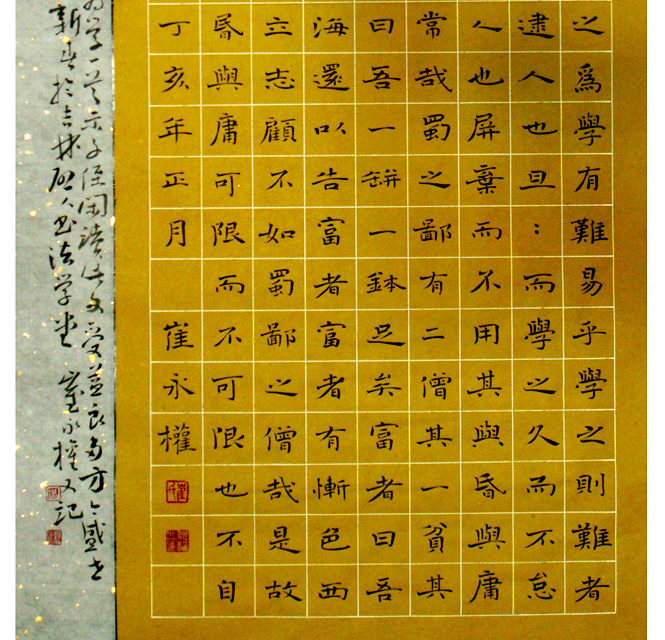 之爲學有難易乎學之則難者
逮人也旦：而學之久而不怠
人也屏棄而不用其與昏與庸
常哉蜀之鄙有二僧其一貧其
曰吾一缾一鉢足矣富者曰吾
海還以告富者富者有慚色西
立志顧不如蜀鄙之僧哉是故
昏與庸可限而不可限也不自
丁亥年正月 崔永權
学一首示子侄閑讀此文受益良多方
新春於吉林 書法学堂 崔永權又記